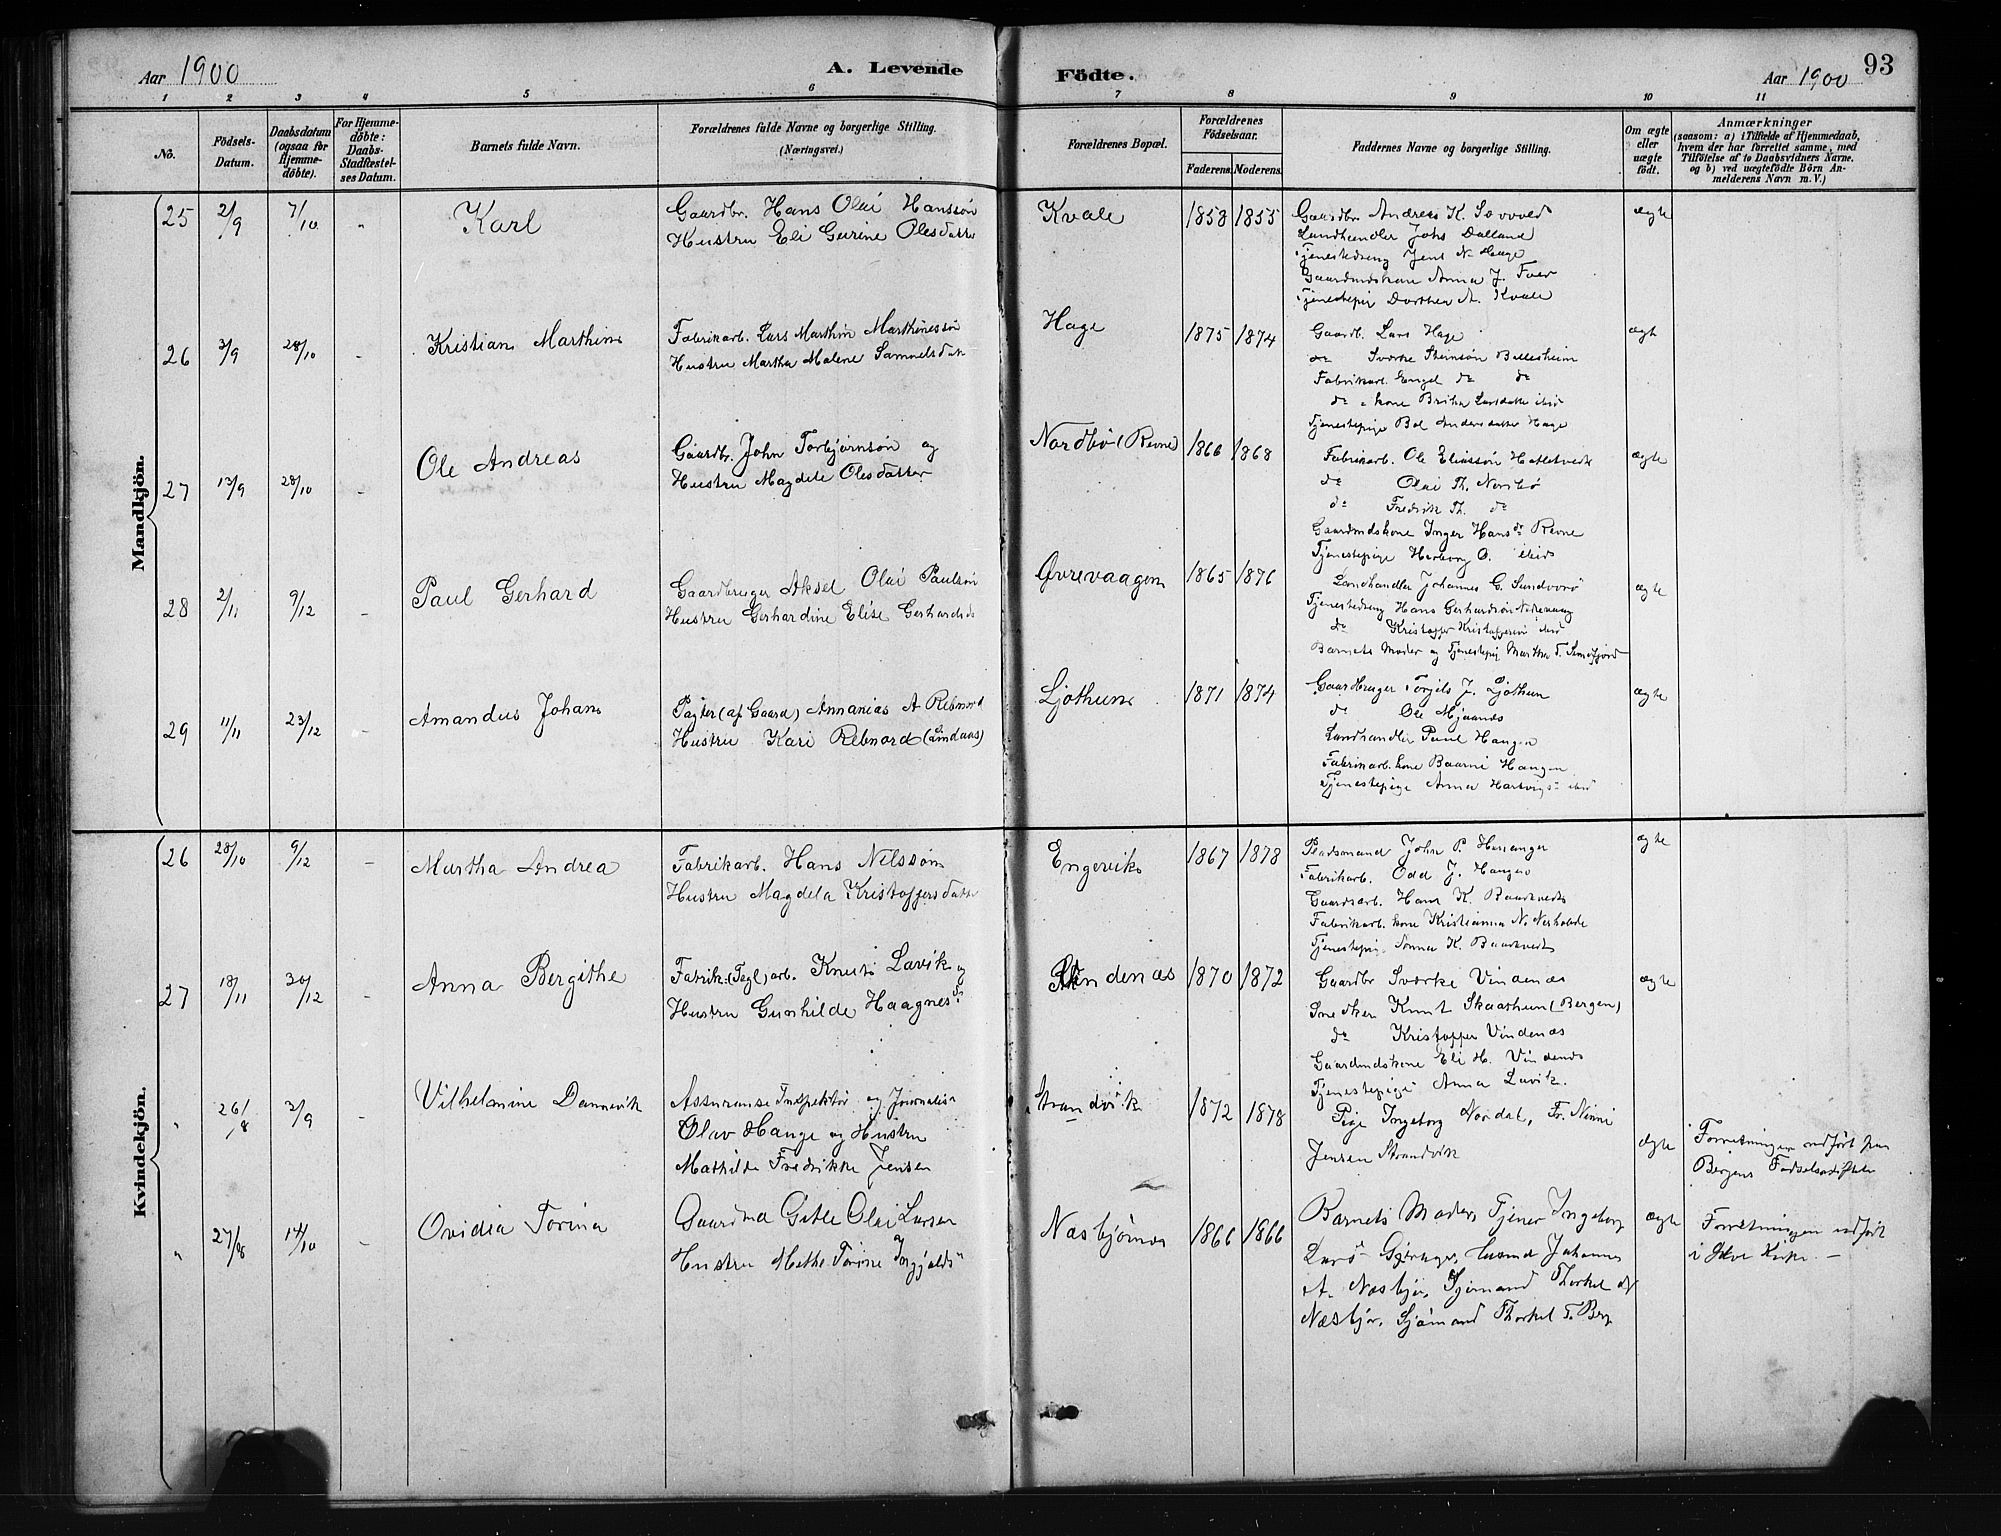 Aar 1900
A. Levende
Födte.
Aar 1900
93
1 2 3 4 5 6 7 8 9 10 11
No.
Födsels-
Datum.
Daabsdatum
(ogsaa for
Hjemme-
döbte).
For Hjemme-
döbte:
Daabs-
Stadfæstel-
ses Datum.
Barnets fulde Navn.
Forældrenes fulde Navne og borgerlige Stilling.
(Næringsvei.)
Forældrenes Bopæl.
Forældrenes
Födselsaar.
Faderens. Moderens.
Faddernes Navne og borgerlige Stilling.
Om ægte
eller
uægte
födt.
Anmærkninger
(saasom: a) i Tilfælde af Hjemmedaab,
hvem der har forrettet samme, med
Tilföielse af to Daabsvidners Navne.
og b) ved uægtefödte Börn An-
melderens Navn m. V.)
Mandkjön.
25 2/9 7/10 " Karl
Gaardbr. Hans Olai Hanssön
Hustru Eli Gurine Olesdatter
Kvale 1858 1855
Gaardbr Andreas K.
Landhandler Johs Dalland
Tjenestedreng Jens N. Hage
Gaardmdskone Anna J.
Tjenestepig Dorthea A. Kvale
ægte
26 3/9 28/10 - Kristian Marthin
Fabrikarb. Lars Marthin Marthinessön
Hustru Martha Malene Samuelsdatt
Hage 1875 1874
Gaardb. Lars Hage
do Sværke Steinsön Bellesheim
Fabrikarb. Engel do do
do kone Britha Larsdatter ibid
Tjenestepige Bol Andersdatter Hage
ægt
27 13/9 28/10 - Ole Andreas
Gaardbr. John Torbjörnsön og
Hustru Magdele Olesdatter
Nordbö (Revne) 1866 1868
Fabrikarb. Ole Eliassön Hatletvedt
do Olai Th. Nordbö
do Fredrik Th. do
Gaardmdskone Inger Hans dr Revne
Tjenestepige Herborg O. ibid
ægte
28 2/11 9/12 - Paul Gerhard
Gaardbruger Aksel Olai Paulsön
Hustru Gerhardine Elise Gerhardsd
Övrevaagen 1865 1876
Landhandler Johannes G. Sundvorö
Tjenestedreng Hans Gerhardsön Nedrevaag
do Kristoffer Kristoffersen ibid
Barnets Moder og Tjenestepig Martha T. Simesfjord
ægte
29 11/11 23/12 - Amandus Johan
Pagter (af Gaard) Annanias A Rebnord
Hustru Kari Rebnord (Lindaas)
Ljothun 1871 1874
Gaardbruger Torgils J. Ljothun
do Ole Mjaanes
Landhandler Paul Haugen
Fabrikarb. kone Baarni Haugen
Tjenestepige Anna Hartvigs ibid
ægte
Kvindekjön.
26 28/10 9/12 - Martha Andrea
Fabrikarb. Hans Nelssön
Hustru Magdela Kristoffersdatter
Engevik 1867 1878
Pladsmand John P.
Fabrikarb. Odd J. Haugen
Gaardsarb. Hans K. Baarkvedt
Fabrikarb. kone Kristianna N.
Tjenestepig. Anna K. Baarkvedt
ægte
27 18/11 30/12 - Anna Bergithe
Fabrik.(Tegl)arb. Knut Lavik og
Hustru Gunhilde Haagnesdr
Vindenæs 1870 1872
Gaardbr Sværke Vindenæs
Snedker Knut Skaathun (Bergen)
do Kristoffer Vindenæs
Gaardmdskone Eli H. Vindenæs
Tjenestepige Anna Lavik.
ægte
" 26/8 2/9 Vilhelmine Dannevik
Assuranse Inspektör og Journalist
Olav Hauge og Hustru
Mathilde Fredrikke Jensen
Strandvik 1872 1878
Pige Ingeborg Nordal, Fr. Ninni
Jensen Strandvik
ægte
Forretningen udfört paa
Bergens Födselsstiftelse
" 27/8 14/10 - Ovidia Torina
Gaardmd Gitle Olai Larsen
Hustru Mette Torine Ingjalds
Næsbjörnes 1866 1866
Barnets Moder, Tjener Ingeborg
Johannes
A. Næsbjör, Sjömand Thorkel
Næsbjör, Sjömand Thorkel T. Berg
ægte
Forretningen udfört
i Kirke. -